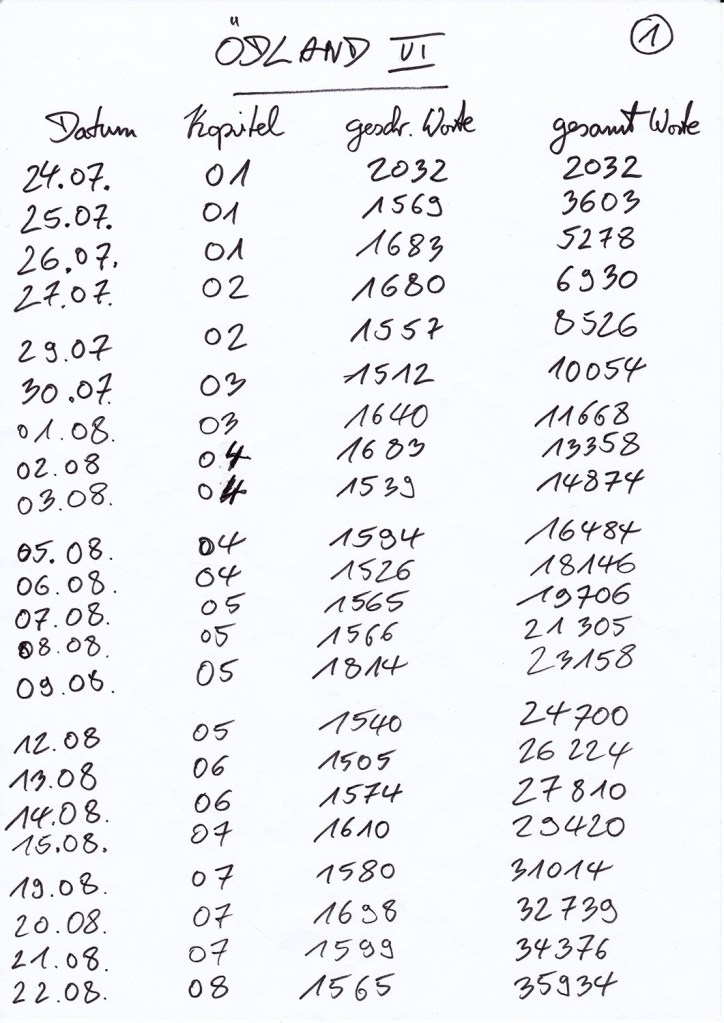 ÖDLAND VI
1
Datum Kapitel geschr. Worte gesamt Worte
24.07. 01 2032 2032
25.07. 01 1569 3603
26.07. 01 1683 5278
27.07. 02 1680 6930
29.07 02 1557 8526
30.07. 03 1512 10054
01.08. 03 1640 11668
02.08 04 1683 13358
03.08. 04 1539 14874
05.08. 04 1594 16484
06.08. 04 1526 18146
07.08. 05 1565 19706
08.08. 05 1566 21305
09.08. 05 1814 23158
12.08 05 1540 24700
13.08 06 1505 26224
14.08. 06 1574 27810
15.08. 07 1610 29420
19.08. 07 1580 31014
20.08. 07 1698 32739
21.08. 07 1599 34376
22.08. 08 1565 35934